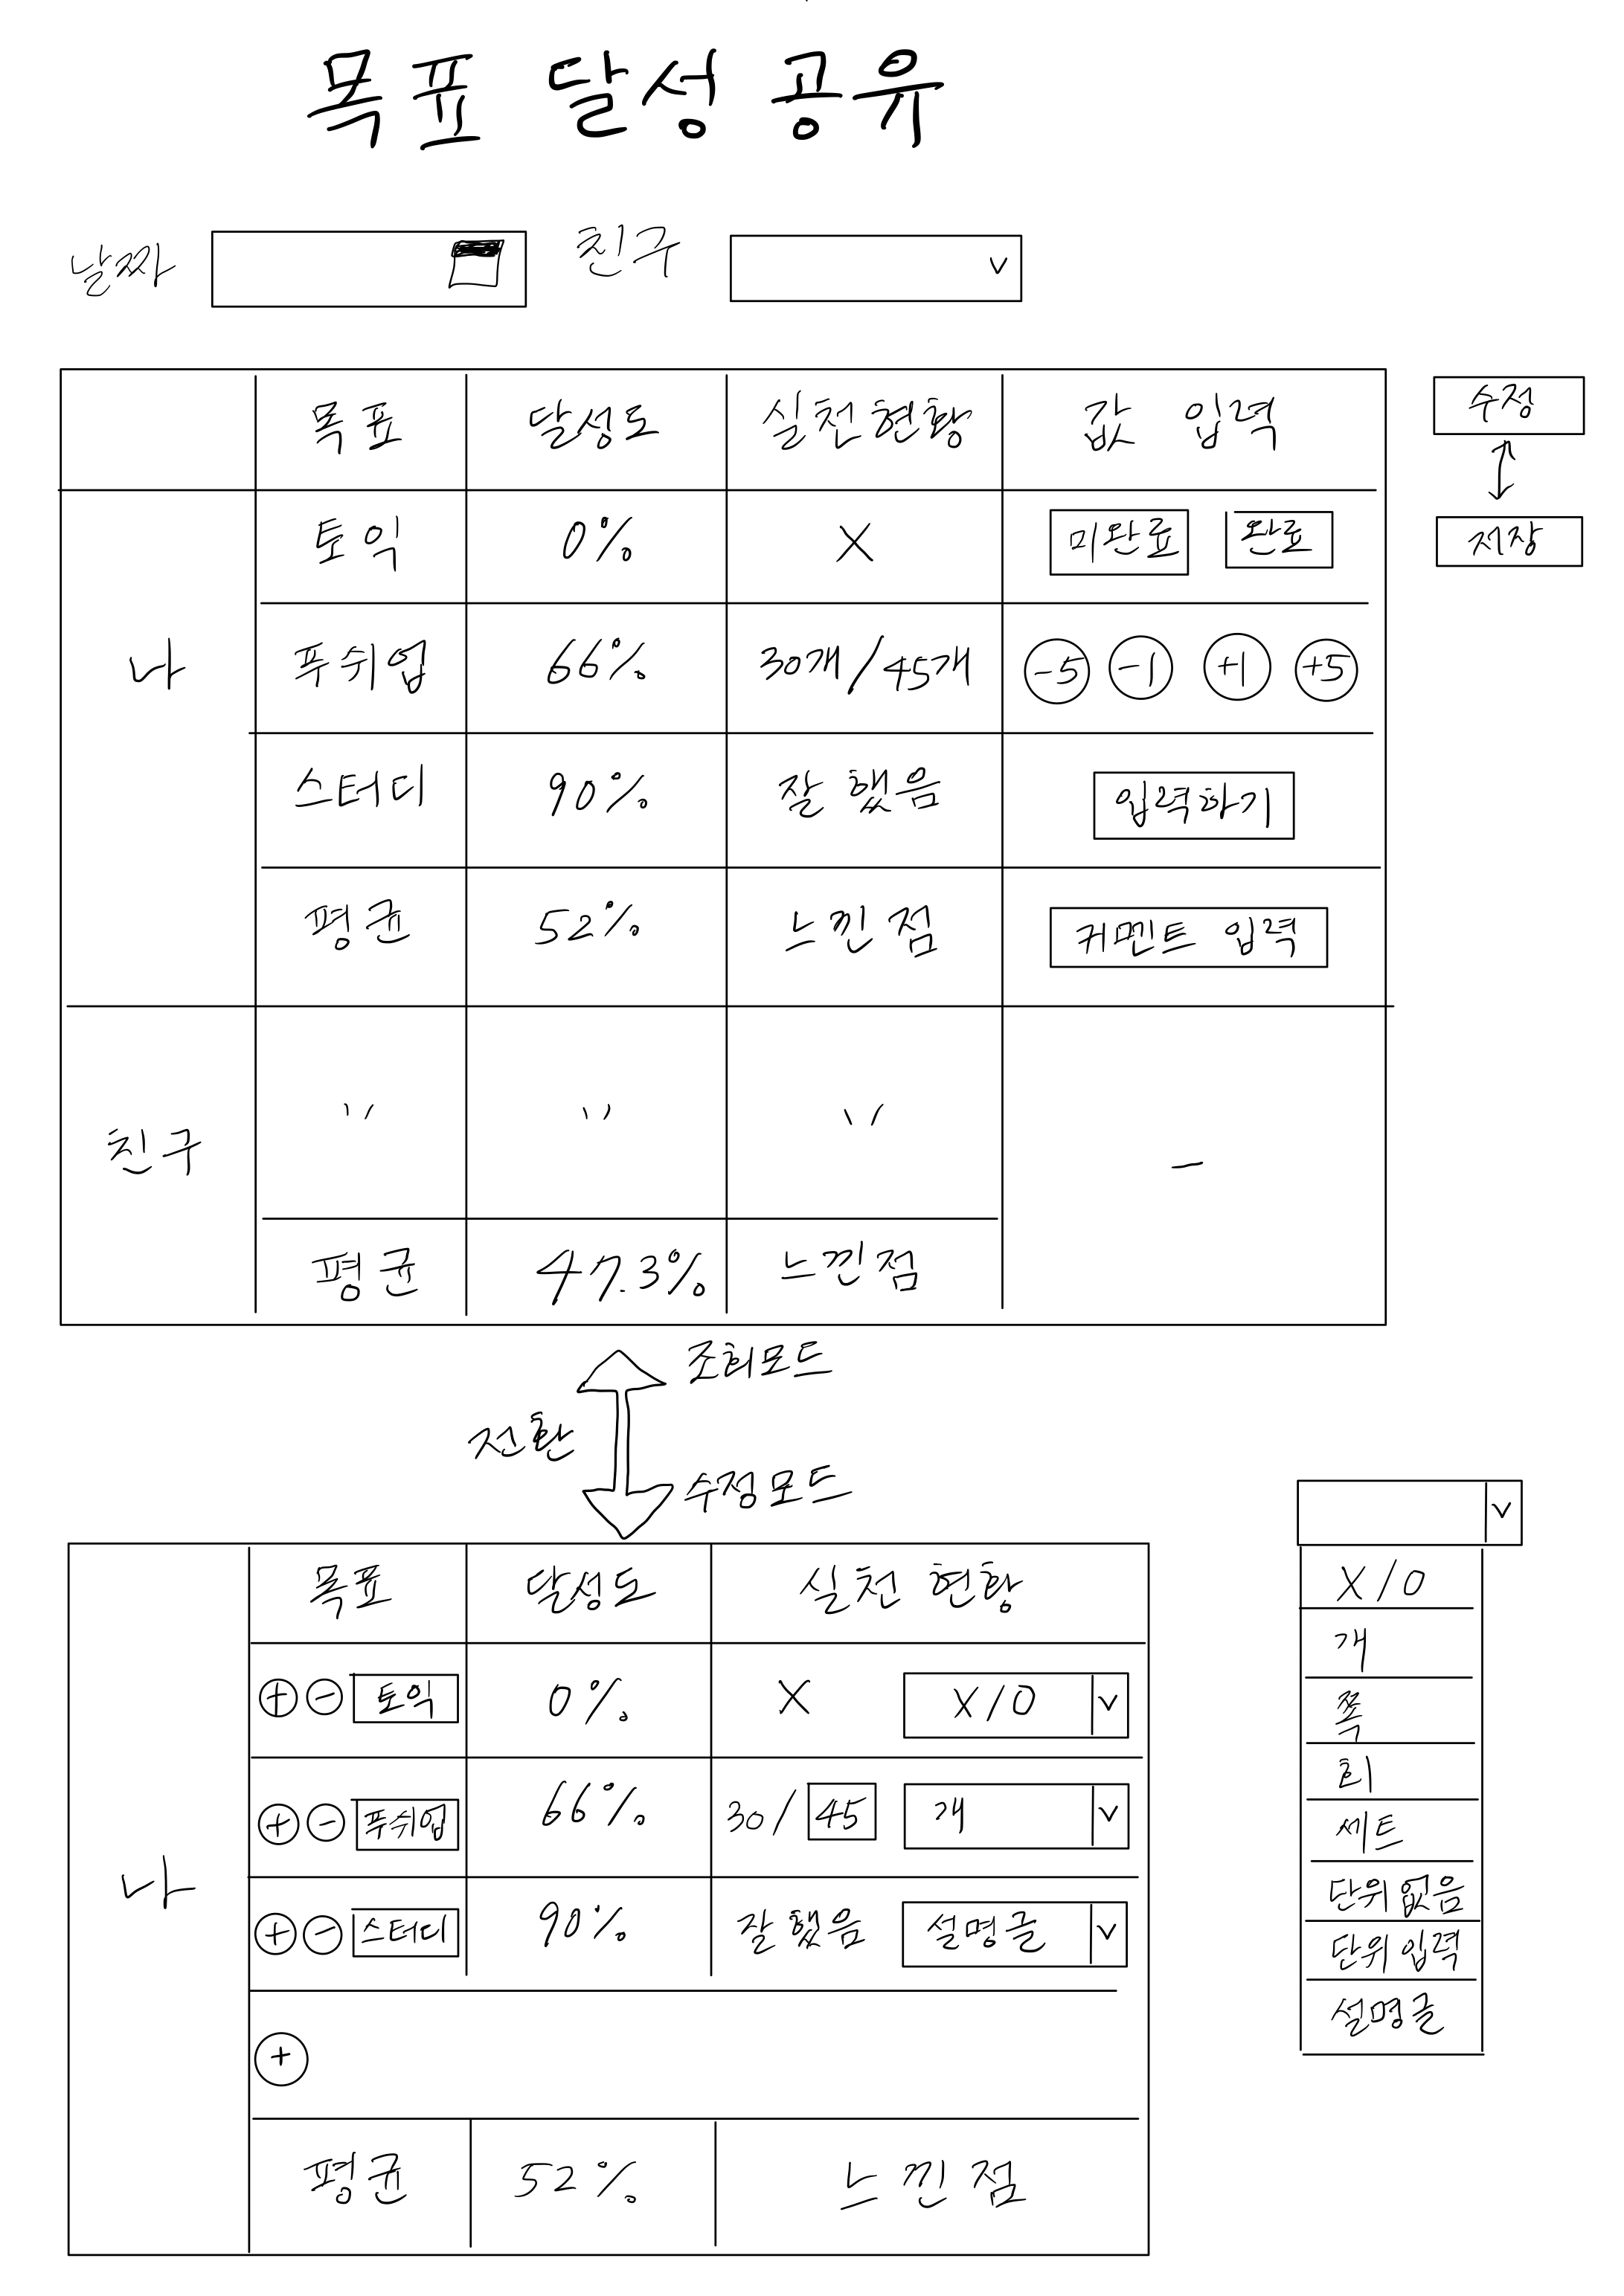 목표 달성 공유
날짜 친구
목표 달성도 실천현황 값 입력 수정
토익 0% X 미완료 완료 저장
나 푸쉬업 66% 30개/45개 -5 -1 +1 +5
스터디 90% 잘 했음 입력하기
평균 52% 느낀점 커멘트 입력
친구 '' '' '' -
평균 47.3% 느낀점
조회모드
전환
수정모드
목표 달성도 실천 현황
+ - 토익 0% X X/O
+ - 푸쉬업 66% 30/45 개
나
+ - 스터디 90% 잘 했음 설명글
+
평균 52% 느낀점
X/O
개
쪽
회
세트
단위 없음
단위 입력
설명글